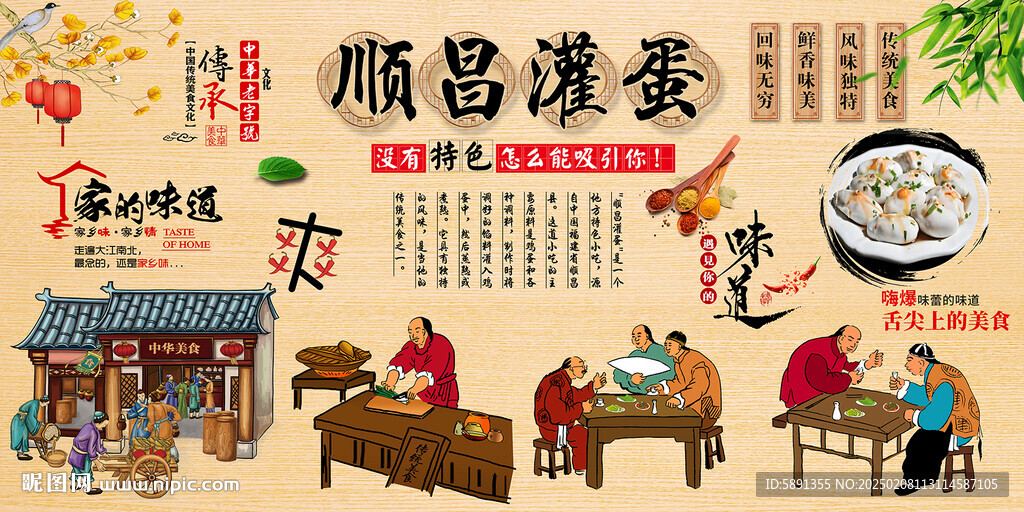 中华老字號
文化
傳承
【中国传统美食文化】
中华美食
顺昌灌蛋
没有特色怎么能吸引你!
传统美食
风味独特
鲜香味美
回味无穷
家的味道
家乡味·家乡情
TASTE
OF HOME
走遍大江南北,
最念的,还是家乡味...
爽
“顺昌灌蛋”是一个
地方特色小吃,源
自中国福建省顺昌
县。这道小吃的主
要原料是鸡蛋和各
种调料,制作时将
调好的馅料灌入鸡
蛋中,然后蒸熟或
煮熟。它具有独特
的风味,是当地的
传统美食之一。
遇見你的
味道
嗨爆味蕾的味道
舌尖上的美食
中华美食
传统美食
昵图网 www.nipic.com
ID:5891355 NO:20250208113114587105